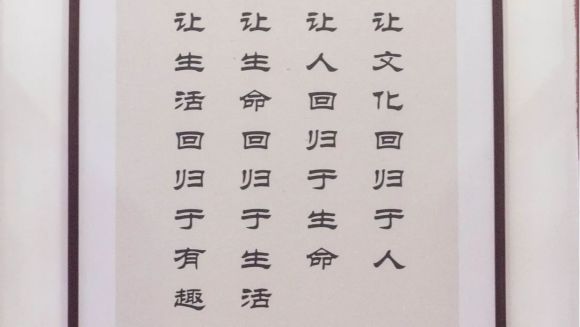 让文化回归于人
让人回归于生命
让生命回归于生活
让生活回归于有趣